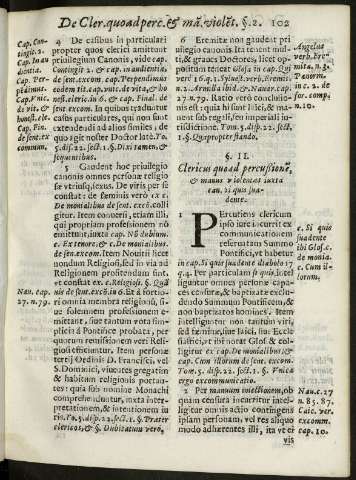 De Cler. quoad perc. & mã. violẽt. §. 2. 102
Cap. Con-
tingit. 2.
Cap. In au-
dientia.
Cap. Per-
pẽdimus.
Cap. Vnic.
de vit. &
honest. cle.
Cap. Fin.
de sent. ex
commun.
4 De casibus in particulari
propter quos clerici amittunt
priuilegium Canonis, vide cap.
Contingit 2. & cap. in audientia,
de sent. excom. cap. Perpendimus
eodem tit. cap. vnic. de vita, &
honest. cleric. in 6. & cap. Final. de
de sent excom. In quibus traduntur
casus particulares, qui non sunt
extendendi ad alios similes: de
quo agit noster Doctor lato. To.
5. disp. 22. sect. 1. §. Diximen, &
sequentibus.
5 Gaudent hoc priuilegio
canonis omnes personæ religio
sæ vtriusq; sexus. De viris per se
constat: de feminis verò ex c.
De monialibus de sent. excõ. colli
gitur. Item conuersi, etiam illi,
qui propriam professionem nõ
emittunt, iuxta cap. Nõ dubium.
c. Ex tenore, & c. De monialibus.
de sen. excom. Item Nouitij licet
nondum sint Religiosi, sed in via ad
Religionem profitendam sunt.
vt constat ex. c. Religioso. §. Quã
uis de sent. excõ. in 6. Et à fortio-
ri omnia membra religionis, si-
ue solennem professionem e-
mittant, siue tantum vota sim-
plicia à Pontifice probata, per-
quorum remissionem veri Reli-
giosi efficiuntur. Item personæ
tertij Ordinis D. Francisci, vel
S. Dominici, viuentes gregatim
& habitum religionis portan-
tes: quia sub nomine Monachi
comprehenduntur, iuxta inter-
pretationem, & intentionem iu
ris. To. 5. disp. 22. sect. 1. §. Præter
clericos, & §. Dubitatum verò,
Nau. cap.
27. n. 79.
6 Eremitæ non gaudent pri
uilegio canonis. Ita tenent mul-
ti, & graues Doctores, licet op-
positum tenet Glosa in cap. Qui
verè 16. q. 1. Syluest. verb. Eremit.
n. 2. Armilla ibid. & Nauar. cap.
27. n. 79. Ratio verò conclusio-
nis est: quia hi sunt laici, & ma-
nent sub foro, seu imperiali iu-
risdictione. Tom. 5. disp. 22. sect.
1. §. Qui propter stando.
Angelus
verb. Ere-
mita. n. 3.
Panorm.
in c. 2. de
for. comp.
n. 10.
§. II.
Clericus quoad percussionẽ,
& manus violentas iuxta
can. Si quis sua-
dente.
1 PErcutiens clericum
ipso iure incurrit ex
communicationem
reseruatam Summo
Pontifici, vt habetur
in cap. Si quis suadente diabolo 17
q. 4. Per particulam si quis, intel
liguntur omnes personæ capa-
ces censuræ, & baptizatæ exclu-
dendo Summum Pontificem, &
non baptizatos homines. Item
intelliguntur non tantum viri,
sed feminæ, siue laici, siue Eccle
siastici, vt ibi notat Glos. & col-
ligitur ex cap. De monialibus, &
cap. Cum illorum de sent. excom.
Tom. 5. disp. 22. sect. 1. §. Vnica
ergo excommunicatio.
c. Si quis
suadente
ibi Glos. c.
de monia.
c. Cum il-
lorum.
2 Per manuum iniectionem, ob
quam censura incurritur intel-
ligitur omnis actio contingens
ipsam personam, vel res aliquo
modo adhærentes illi, ita vt ei
Nau. c. 27
n. 85. 87.
Caie. ver.
excommu
cap. 10.
vis